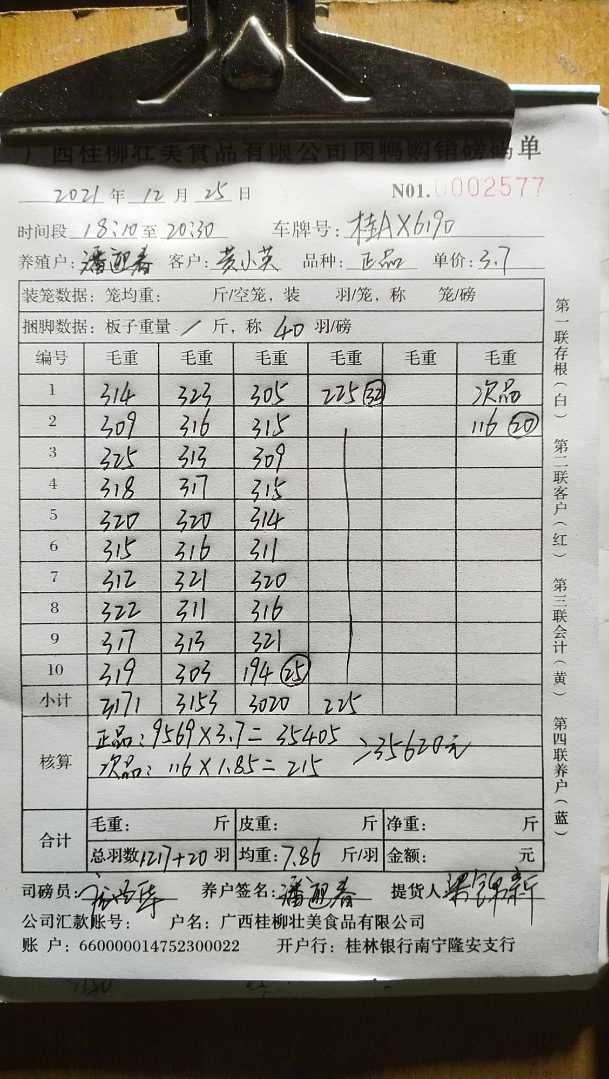 广西桂柳壮美食品有限公司肉鸭购销磅码单
2021年12月25日 N01.0002577
时间段 18:10至20:30 车牌号:桂AX6190
养殖户:潘迎春 客户:黄小英 品种:正品 单价:3.7
装笼数据:笼均重: 斤/空笼,装 羽/笼,称 笼/磅
捆脚数据:板子重量 / 斤,称 40 羽/磅
编号 毛重 毛重 毛重 毛重 毛重 毛重
1 314 323 305 225 32 次品
2 309 316 315 116 20
3 325 313 309
4 318 317 315
5 320 320 314
6 315 316 311
7 312 321 320
8 322 311 316
9 317 313 321
10 319 303 194 25
小计 3171 3153 3020 225
核算
正品:9569×3.7=35405
次品:116×1.85=215
>35620元
合计
毛重: 斤 皮重: 斤 净重: 斤
总羽数1217+20羽 均重:7.86 斤/羽 金额: 元
司磅员: 养户签名:潘迎春 提货人
公司汇款账号: 户名:广西桂柳壮美食品有限公司
账 户:660000014752300022 开户行:桂林银行南宁隆安支行
第一联存根(白) 第二联客户(红) 第三联会计(黄) 第四联养户(蓝)